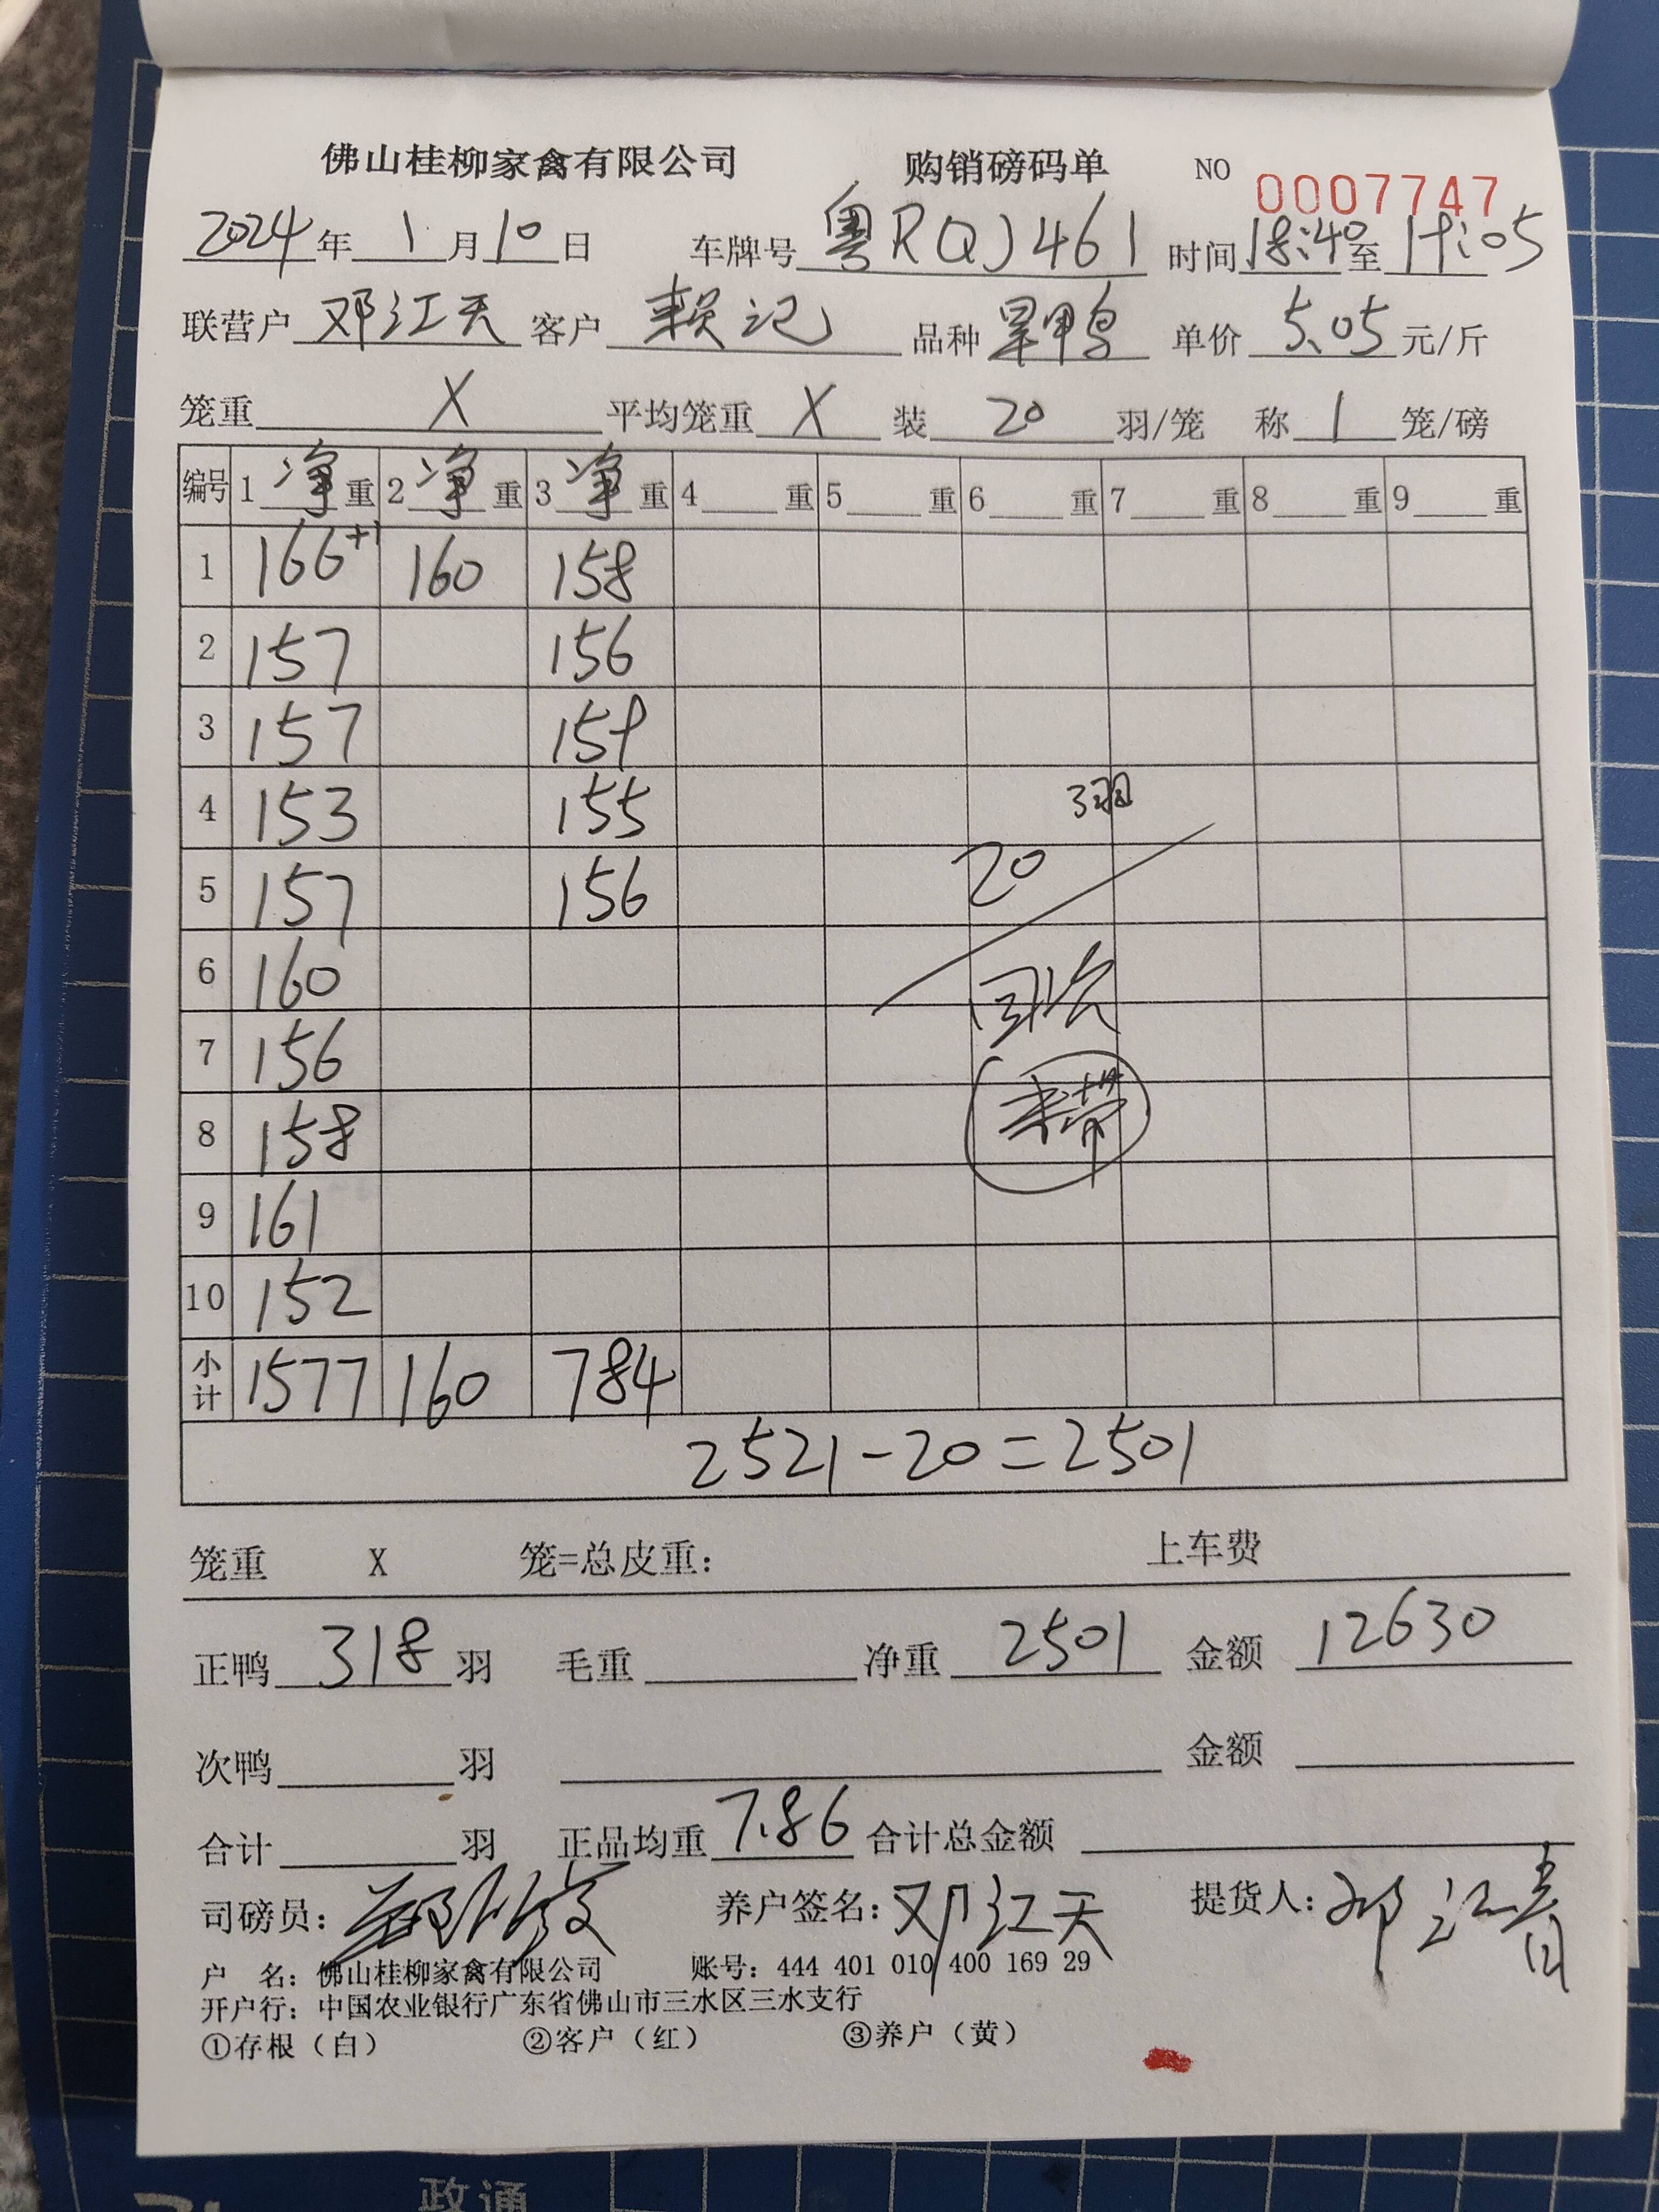 佛山桂柳家禽有限公司 购销磅码单 NO 0007747
2024年 1 月 10 日 车牌号 粤RQJ461 时间 18:40 至 19:05
联营户 邓江天 客户 赖记 品种 旱鸭 单价 5.05 元/斤
笼重 X 平均笼重 X 装 20 羽/笼 称 1 笼/磅
编号 1 净 重 2 净 重 3 净 重 4 重 5 重 6 重 7 重 8 重 9 重
1 166+1 160 158
2 157 156
3 157 159
4 153 155
3羽
5 157 156
20
6 160
7 156
8 158
9 161
10 152
小计 1577 160 784
2521-20=2501
笼重 X 笼=总皮重: 上车费
正鸭 318 羽 毛重 净重 2501 金额 12630
次鸭 羽 金额
合计 羽 正品均重 7.86 合计总金额
司磅员: 养户签名: 邓江天 提货人: 邓江青
户 名: 佛山桂柳家禽有限公司 账号: 444 401 010 400 169 29
开户行: 中国农业银行广东省佛山市三水区三水支行
①存根（白） ②客户（红） ③养户（黄）
政通